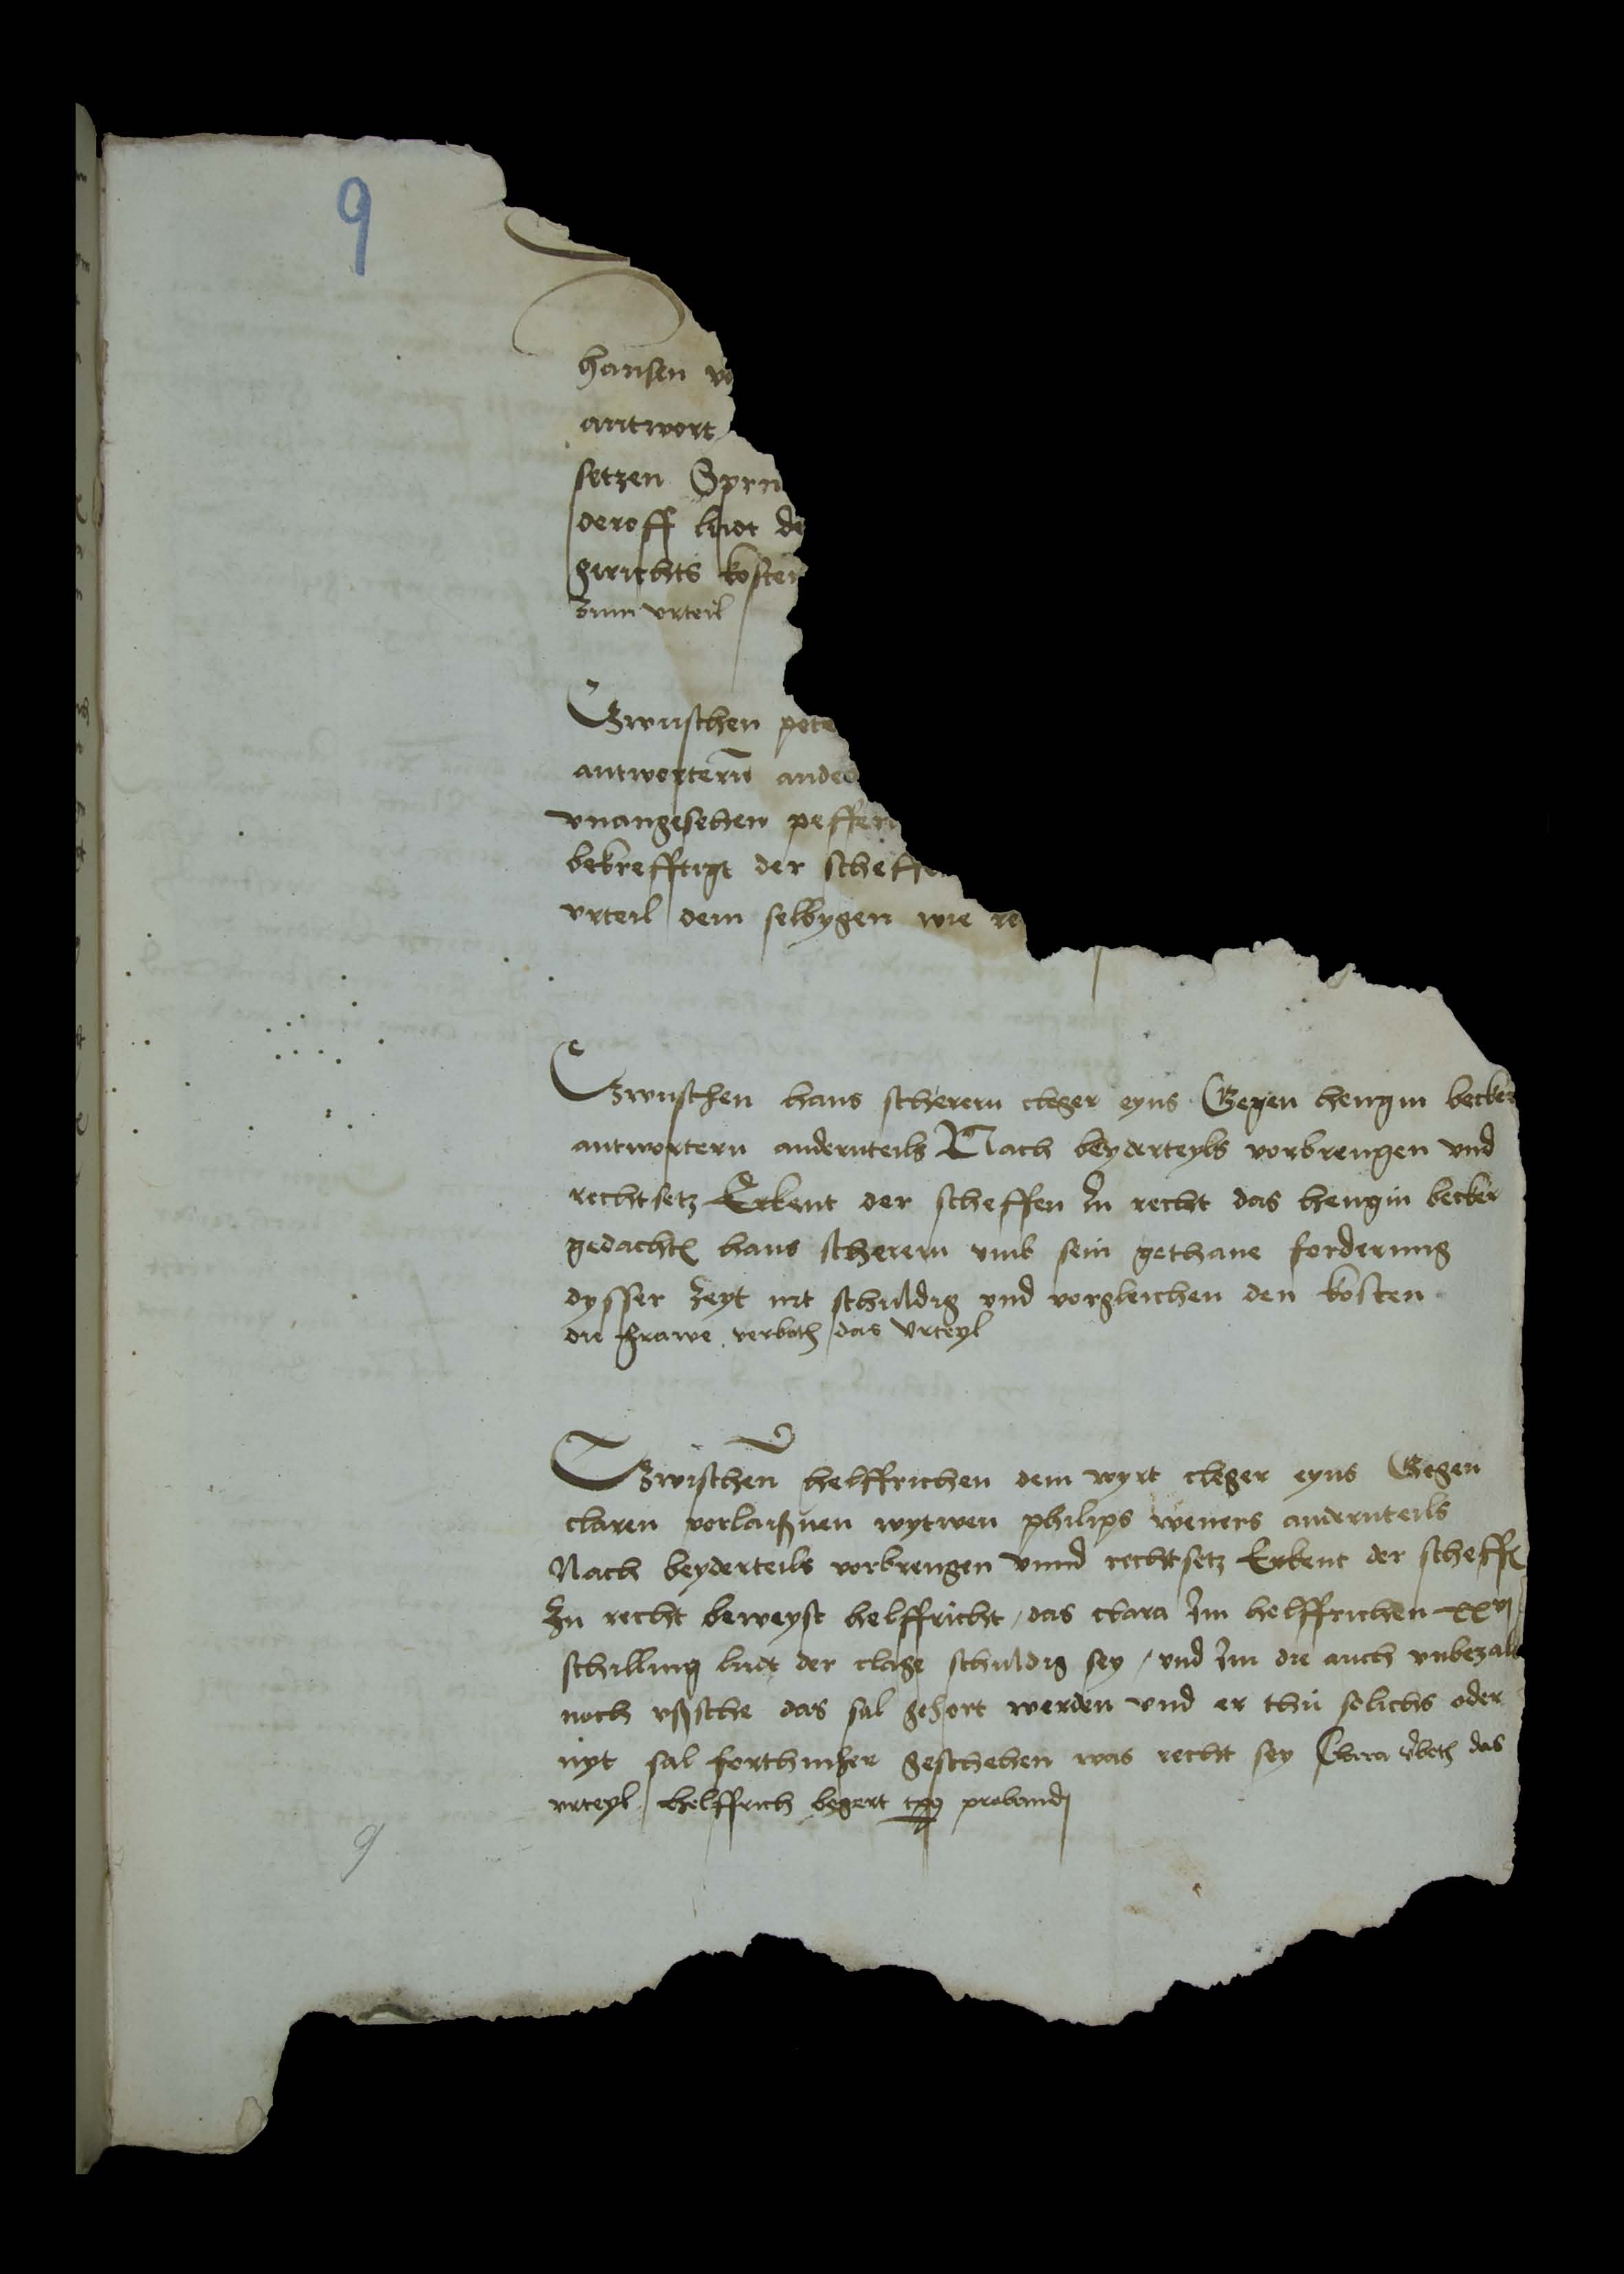 9
hansen vo
antwort
setzen Spru
deroff ludt de
gerichts kosten
zum urteil
Zwuschen pete
antworternn ander
vnangesehen peffern
bekrefftigt der scheffen
vrteil dem selbygen wie re
Zwuschen hans scherern cleger eyns Gegen hengin becker
antwortern andernteils Nach beyderteyls vorbrengen vnd
rechtsetz Erkent der scheffen zu recht das hengin becker
gedacht hans scherern vmb sein gethane forderung
dysser Zeyt nit schuldig vnd vorgleichen den kosten
die frawe verboth das Vrteyl
Zwischenn helffrichen dem wyrt cleger eyns Gegen
claren vorlaißnen wytwen philips weners andernteils
Nach beyderteils vorbrengen vnnd rechtsetz Erkent der scheff
Zu recht beweyst helffricht / das clara Im helffrichen xxvj
schilling ludt der clage schuldig sey / vnd Im die auch vnbezalt
noch vßsthe das sal gehort werden vnd er thu solichs oder
nyt sal forthinher geschehen was recht sey Clara vboth das
vrteyl helffrich begert tpg probandj
9